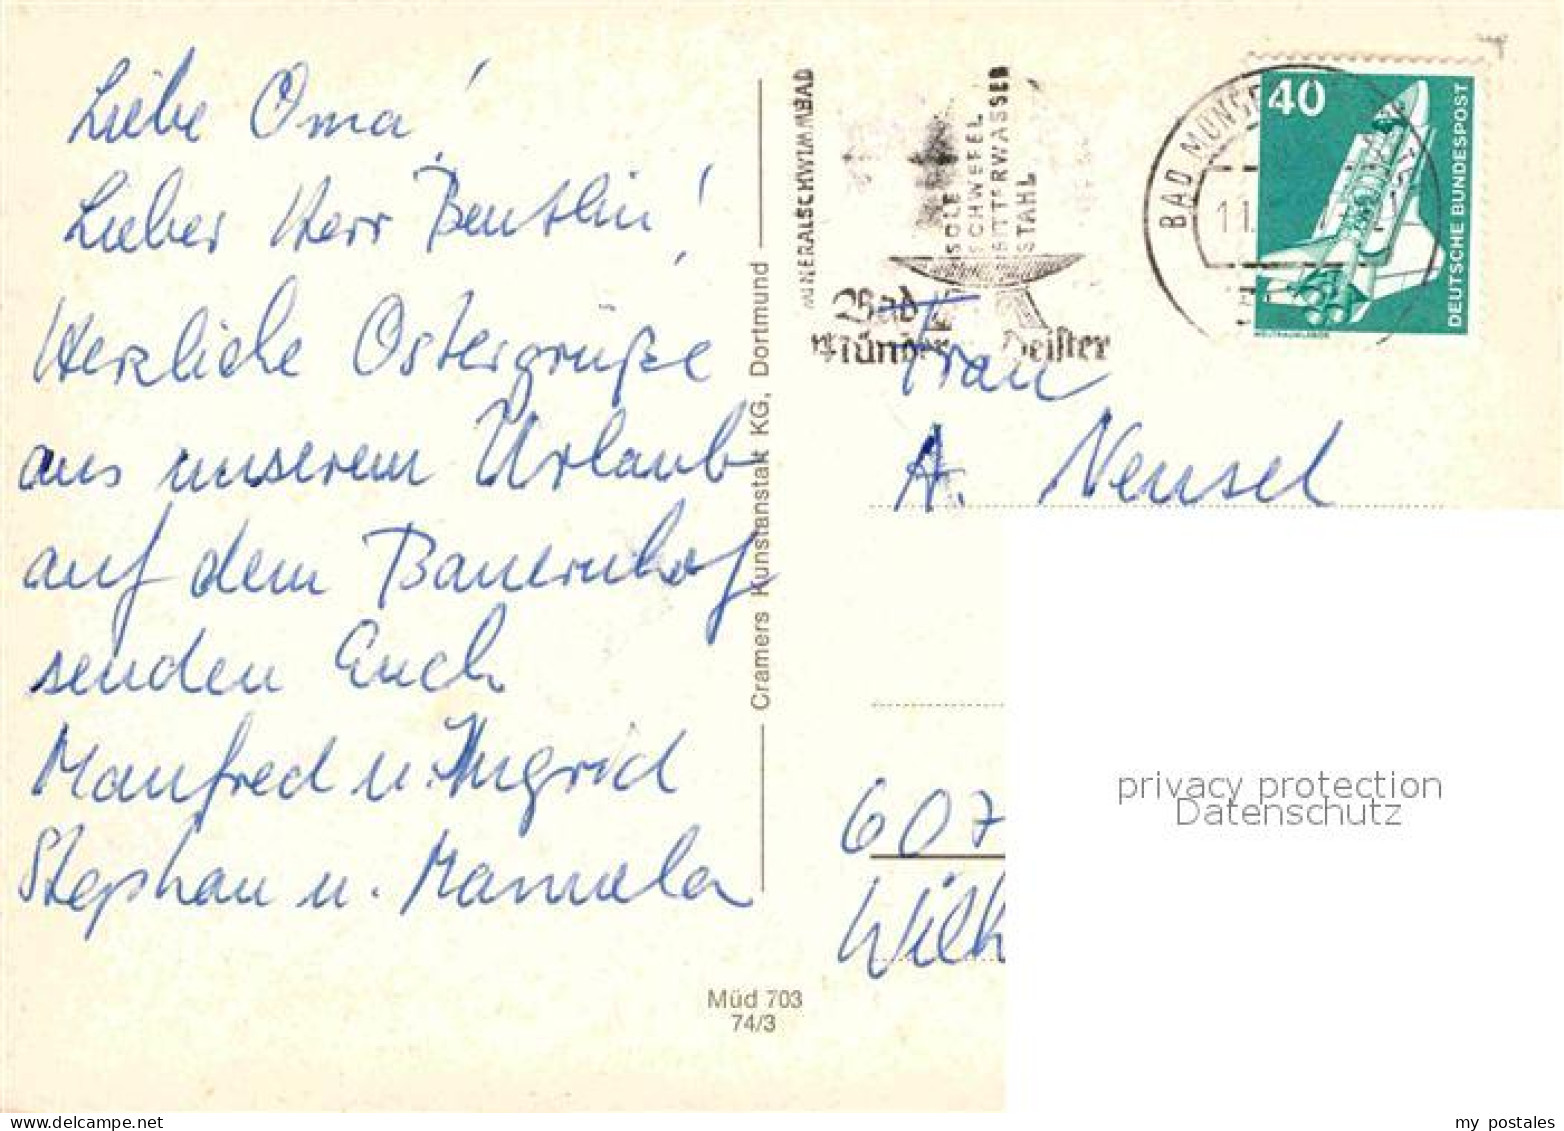 Liebe Oma!
Lieber Herr Benthin!
Herzliche Ostergrüße
aus unserem Urlaub
auf dem Bauernhof
senden Euch
Manfred u. Ingrid
Stephan u. Manuela
Cramers Kunstanstalt KG, Dortmund
Müd 703
74/3
MINERALSCHWIMMBAD
SOLE
SCHWEFEL
BITTERWASSER
STAHL
Bad
Münder Deister
BAD MÜNDER
11.
40
DEUTSCHE BUNDESPOST
WELTRAUMLABOR
Frau
A. Neusel
607
Wilh
privacy protection
Datenschutz
my postales